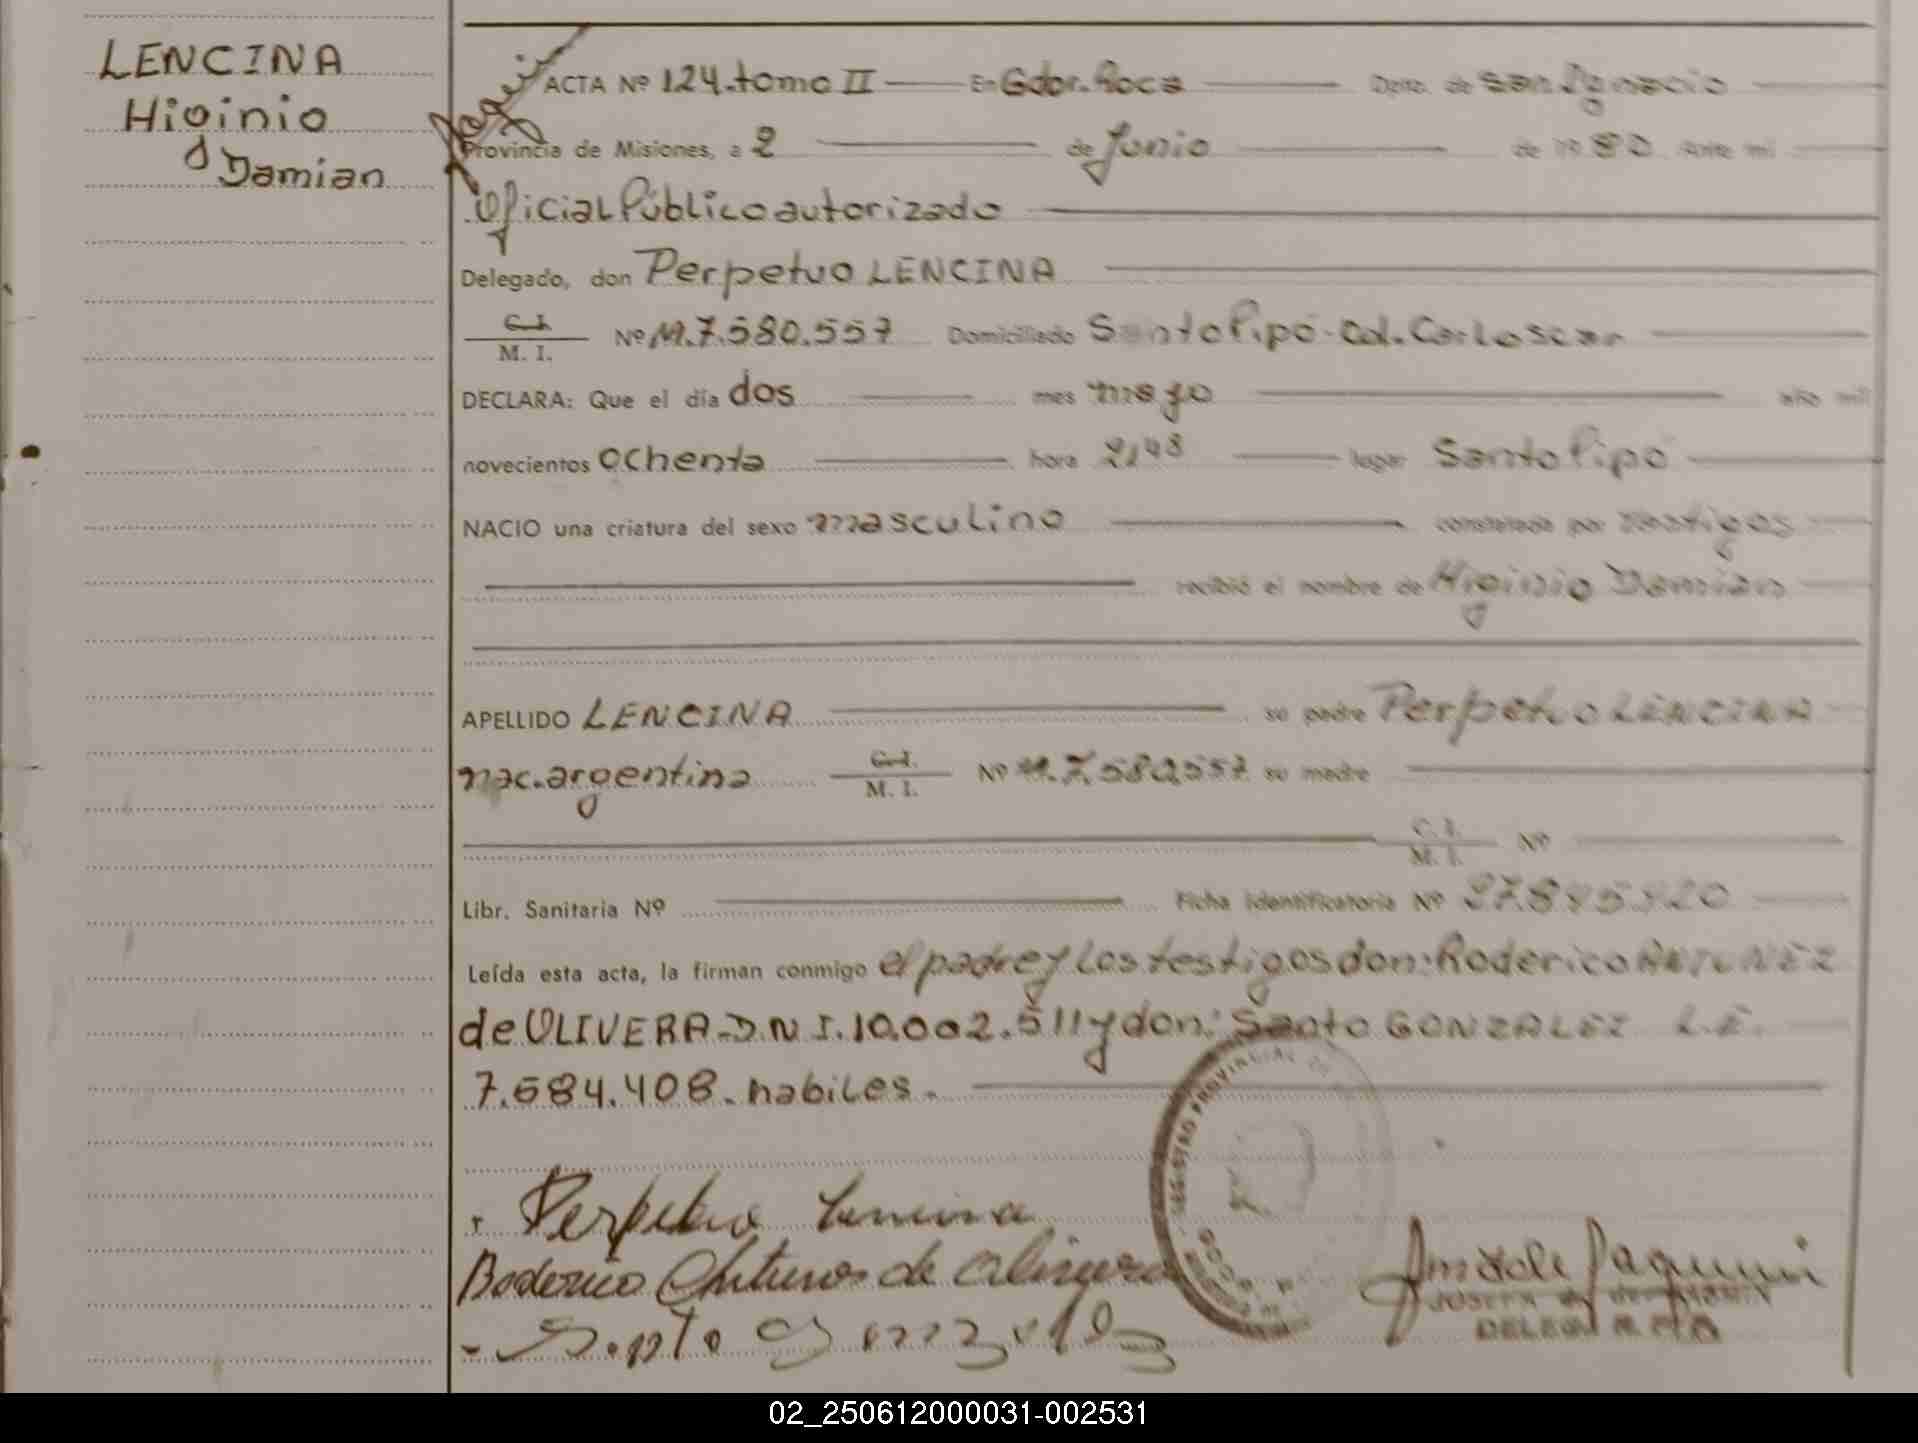 LENCINA
Higinio
Damian
ACTA Nº 124.tomo II En Gdor.Roca Dpto. de San Ignacio
Provincia de Misiones, a 2 de Junio de 1980 Ante mí
Oficial Público autorizado
Delegado, don Perpetuo LENCINA
C.I.
M. I. Nº M.7.580.557 Domiciliado Santo Pipó-Col.
DECLARA: Que el día dos mes mayo año mil
novecientos ochenta hora lugar Santo Pipó
NACIO una criatura del sexo masculino constatado por testigos
recibió el nombre de Higinio Damian
APELLIDO LENCINA su padre Perpetuo LENCINA
nac.argentina C.I.
M. I. Nº M.7.580.557 su madre
C. I.
M. I. Nº
Libr. Sanitaria Nº Ficha Identificatoria Nº
Leída esta acta, la firman conmigo el padre y los testigos don: Roderico ANTUNEZ
de OLIVERA-D.N.I.10.002.511 y don: Santo GONZALEZ L.E.
7.584.408. habiles.
Perpetuo Lencina
Roderico Antunes de oliveira
Santo gonzalez
REGISTRO PROVINCIAL DE
DELEGADA
02_250612000031-002531